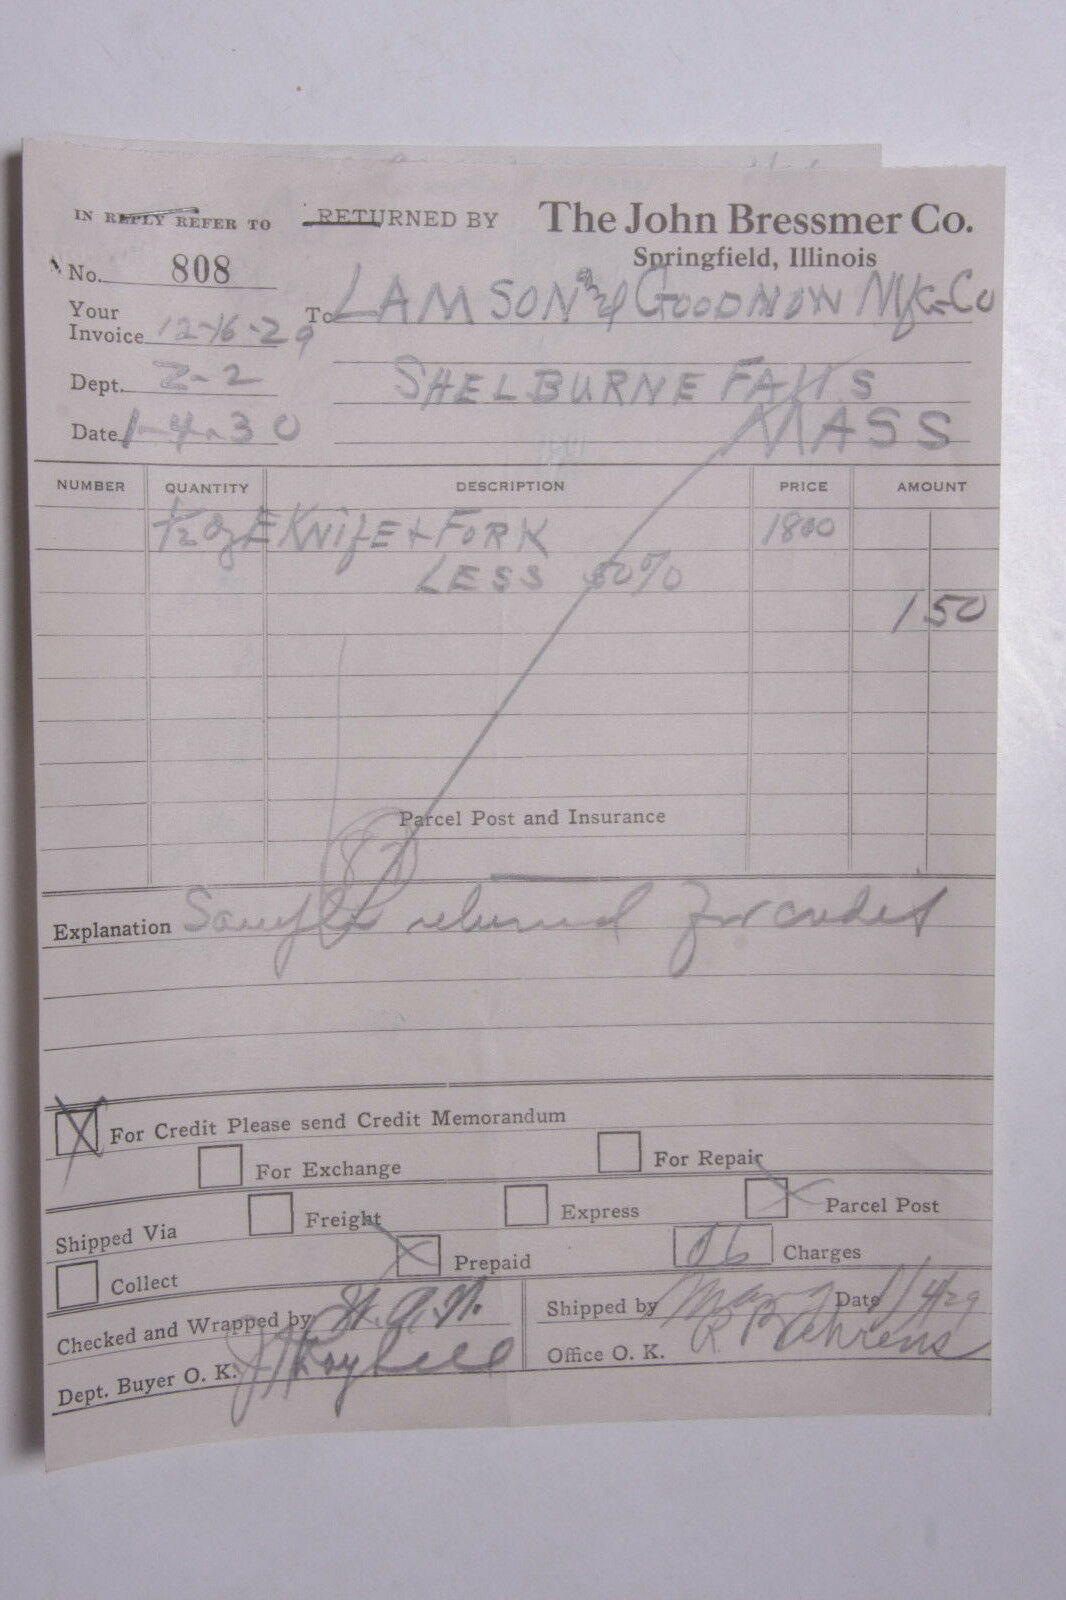 IN REPLY REFER TO RETURNED BY The John Bressmer Co.
Springfield, Illinois
No. 808
To LAMSON and GOODNOW Mfg Co
Your Invoice 12-16-29
Dept. Z-2 SHELBURNE FALLS
Date 1-4-30 MASS
NUMBER QUANTITY DESCRIPTION PRICE AMOUNT
KNIFE + FORK 1800
LESS 50%
1 50
Parcel Post and Insurance
Explanation Sample returned for credit
X For Credit Please send Credit Memorandum
For Exchange For Repair
Shipped Via Freight Express X Parcel Post
Collect X Prepaid 06 Charges
Checked and Wrapped by Shipped by Mary Date 1/4/29
Dept. Buyer O. K. Office O. K. R Behrens